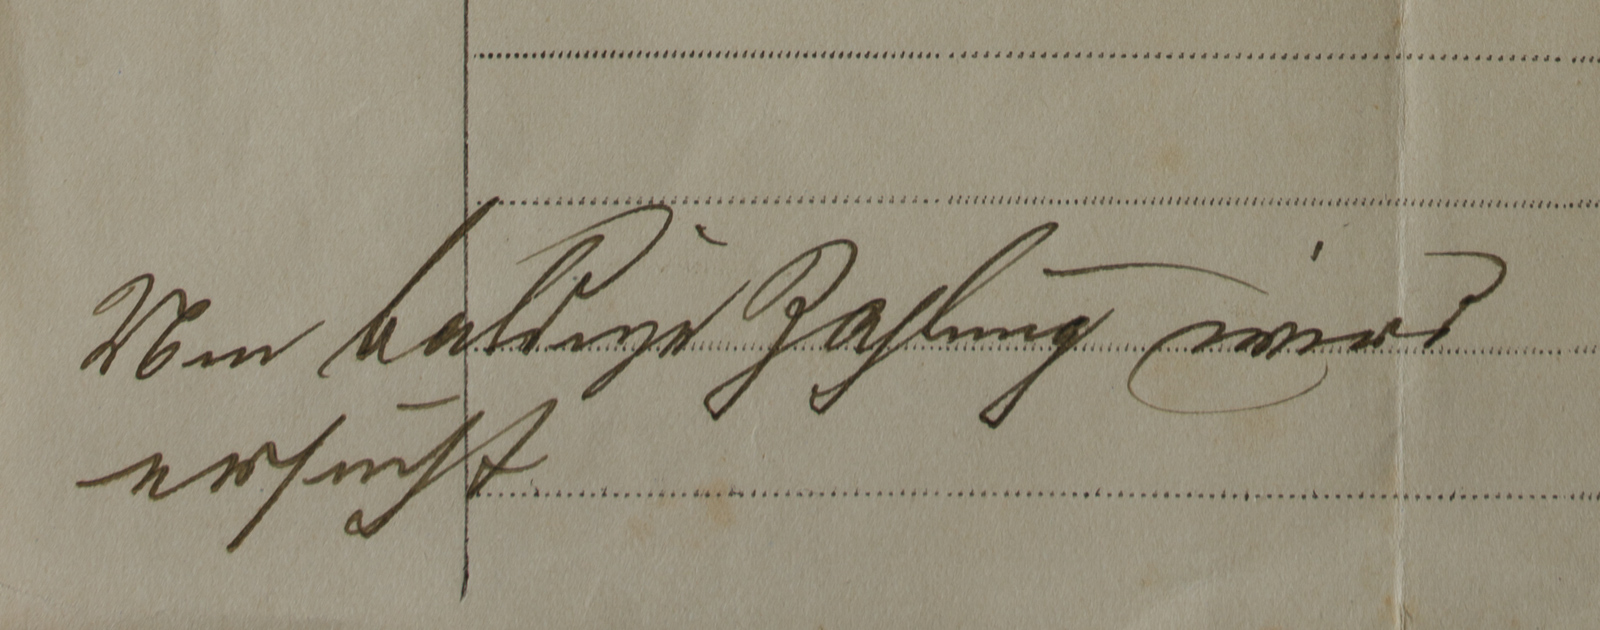 Um baldige Zahlung wird
ersucht